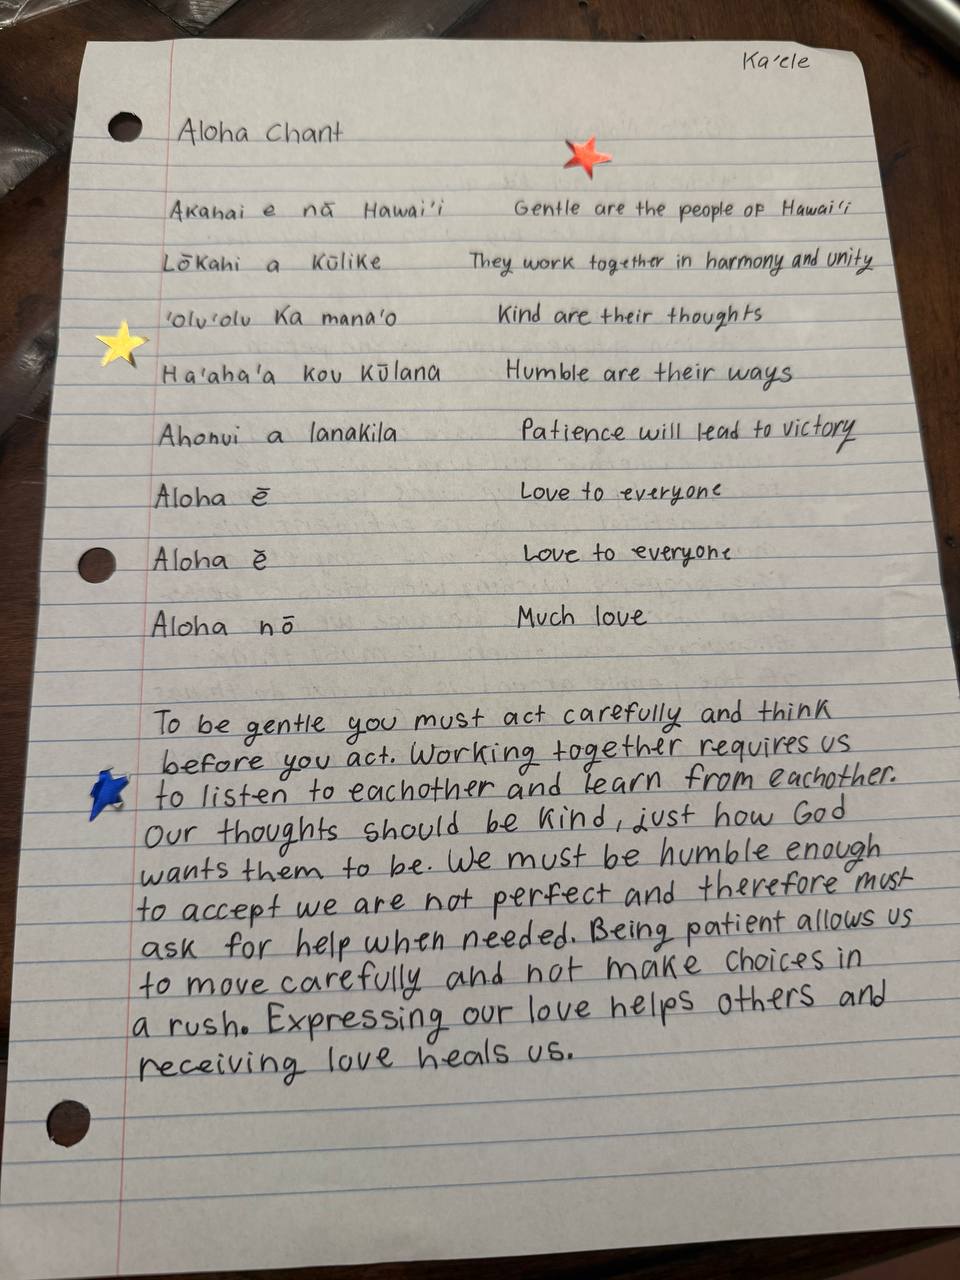 Ka'ele
Aloha Chant
Akahai e nā Hawai'i Gentle are the people of Hawai'i
Lōkahi a Kūlike They work together in harmony and unity
'olu'olu Ka mana'o Kind are their thoughts
Ha'aha'a kou Kūlana Humble are their ways
Ahonui a lanakila Patience will lead to victory
Aloha ē Love to everyone
Aloha ē Love to everyone
Aloha nō Much love
To be gentle you must act carefully and think
before you act. Working together requires us
to listen to eachother and learn from eachother.
Our thoughts should be kind, just how God
wants them to be. We must be humble enough
to accept we are not perfect and therefore must
ask for help when needed. Being patient allows us
to move carefully and not make choices in
a rush. Expressing our love helps others and
receiving love heals us.